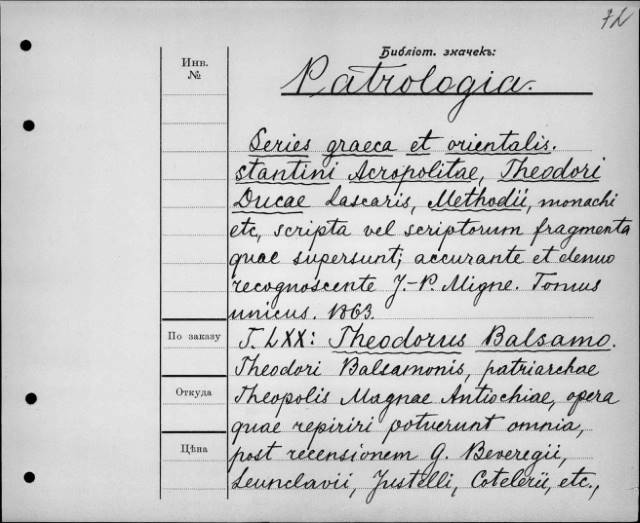 72
Библіот. значекъ:
Инв.
№
Patrologia.
Series graeca et orientalis.
stantini Acropolitae, Theodori
Ducae Lascaris, Methodii, monachi
etc, scripta vel scriptorum fragmenta
quae supersunt; accurante et denuo
recognoscente J.-P. Migne. Tomus
unicus. 1863.
По заказу
T. LXX: Theodorus Balsamo.
Theodori Balsamonis, patriarchae
Откуда
Theopolis Magnae Antiochiae, opera
quae repiriri potuerunt omnia,
Цѣна
post recensionem G. Beveregii,
Leunclavii, Justelli, Cotelerii, etc.,